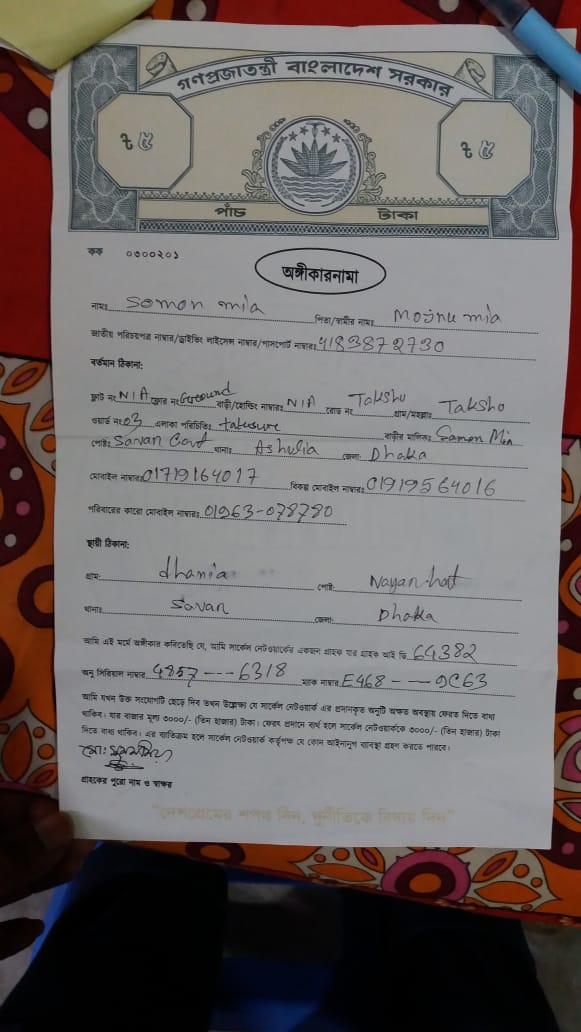 গণপ্রজাতন্ত্রী বাংলাদেশ সরকার
৳ ৫ ৳ ৫
পাঁচ টাকা
কক ০৩০০২০১
অঙ্গীকারনামা
নামঃ Somon mia পিতা/স্বামীর নামঃ Mojnu mia
জাতীয় পরিচয়পত্র নাম্বার/ড্রাইভিং লাইসেন্স নাম্বার/পাসপোর্ট নাম্বারঃ 4183872730
বর্তমান ঠিকানা:
ফ্লাট নং N/A ফ্লোর নং Ground বাড়ী/হোল্ডিং নাম্বারঃ N/A রোড নং Taksho গ্রাম/মহল্লাঃ Taksho
ওয়ার্ড নং 03 এলাকা পরিচিতিঃ বাড়ীর মালিকঃ Somon Mia
পোষ্টঃ Savan Cant থানাঃ Ashulia জেলা: Dhaka
মোবাইল নাম্বারঃ 01719164017 বিকল্প মোবাইল নাম্বারঃ 01919564016
পরিবারের কারো মোবাইল নাম্বারঃ 01963-078780
স্থায়ী ঠিকানা:
গ্রাম: dhamia পোষ্ট: Nayanhat
থানাঃ Savan জেলা: Dhaka
আমি এই মর্মে অঙ্গীকার করিতেছি যে, আমি সার্কেল নেটওয়ার্কের একজন গ্রাহক যার গ্রাহক আই ডি 64382
অনু সিরিয়াল নাম্বার 4857---6318 ম্যাক নাম্বার E468---9C63
আমি যখন উক্ত সংযোগটি ছেড়ে দিব তখন উল্লেক্ষ্য যে সার্কেল নেটওয়ার্ক এর প্রদানকৃত অনুটি অক্ষত অবস্থায় ফেরত দিতে বাধ্য
থাকিব। যার বাজার মূল্য ৩০০০/- (তিন হাজার) টাকা। ফেরৎ প্রদানে ব্যর্থ হলে সার্কেল নেটওয়ার্ককে ৩০০০/- (তিন হাজার) টাকা
দিতে বাধ্য থাকিব। এর ব্যতিক্রম হলে সার্কেল নেটওয়ার্ক কর্তৃপক্ষ যে কোন আইনানুগ ব্যবস্থা গ্রহণ করতে পারবে।
মো: সুমন মিয়া
গ্রাহকের পুরো নাম ও স্বাক্ষর
"দেশপ্রেমের শপথ নিন, দুর্নীতিকে বিদায় দিন"